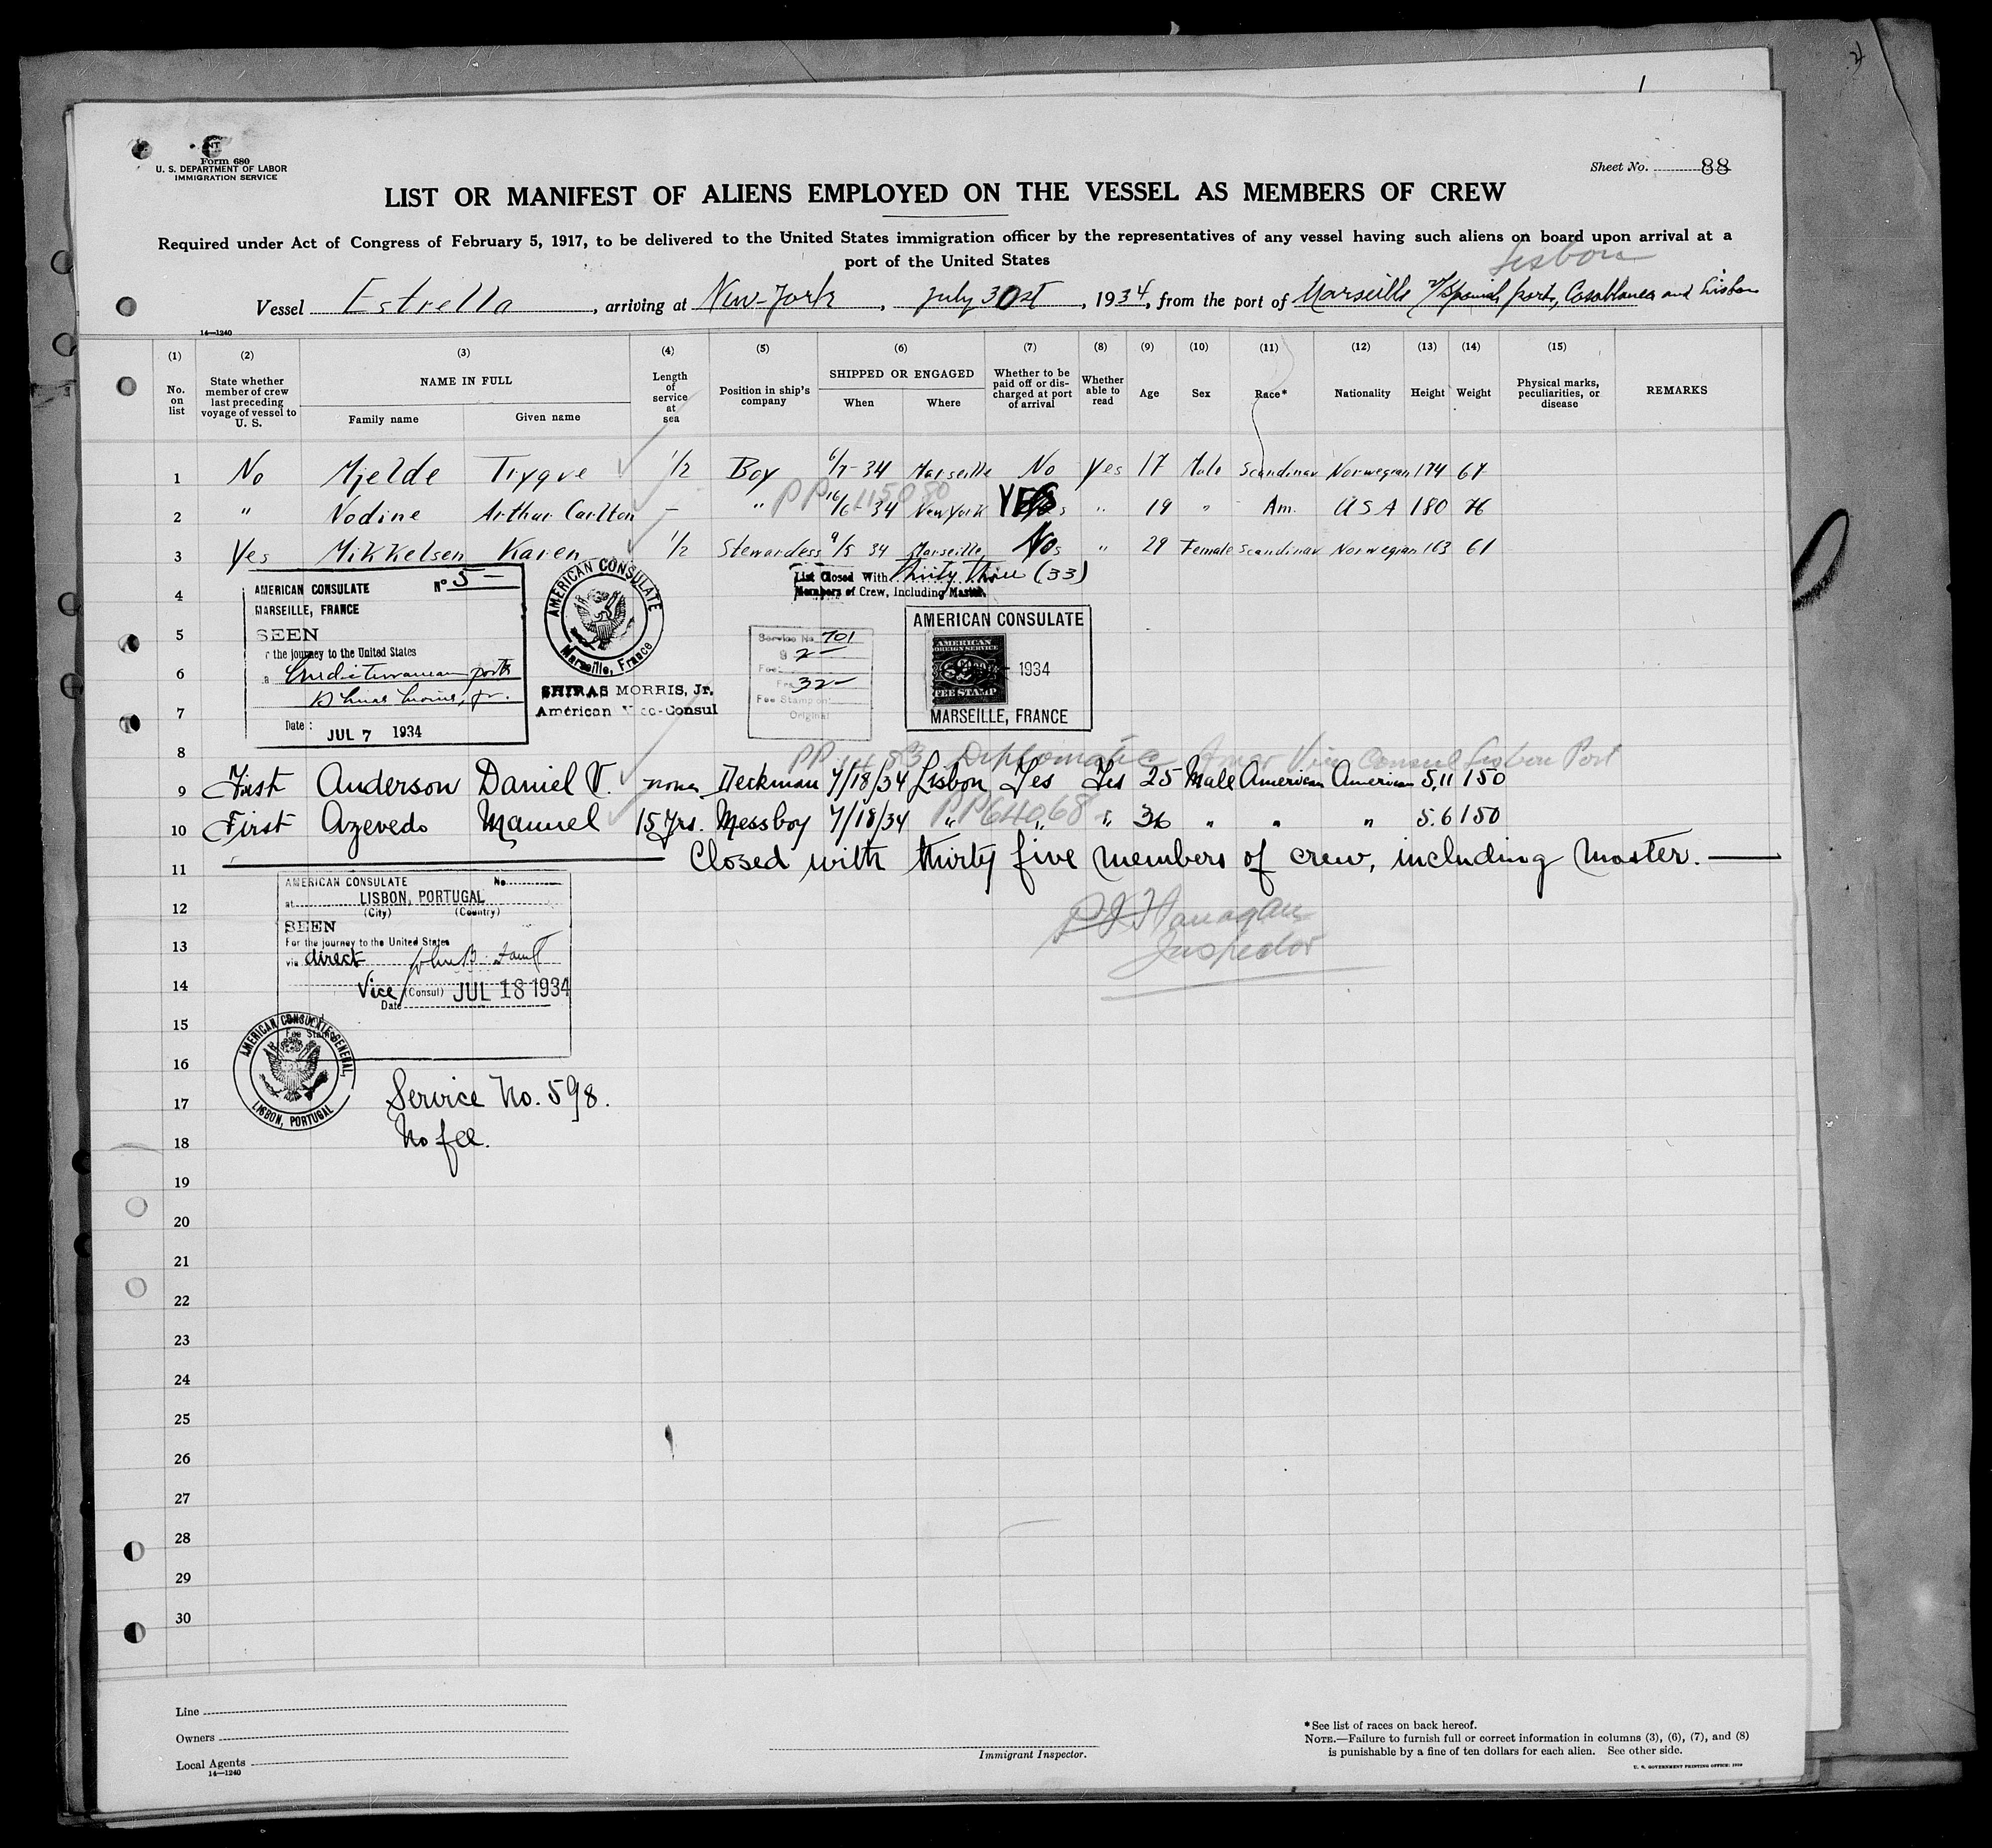 Form 680
U. S. DEPARTMENT OF LABOR
IMMIGRATION SERVICE
Sheet No. 88
LIST OR MANIFEST OF ALIENS EMPLOYED ON THE VESSEL AS MEMBERS OF CREW
Required under Act of Congress of February 5, 1917, to be delivered to the United States immigration officer by the representatives of any vessel having such aliens on board upon arrival at a
port of the United States
Lisbon
Vessel Estrella, arriving at New-York, July 30st, 1934, from the port of Marseille Spanish ports, Casablanca and Lisbon
14—1240
(1) (2) (3) (4) (5) (6) (7) (8) (9) (10) (11) (12) (13) (14) (15)
No. on list
State whether member of crew last preceding voyage of vessel to U. S.
NAME IN FULL
Family name Given name
Length of service at sea
Position in ship's company
SHIPPED OR ENGAGED
When Where
Whether to be paid off or discharged at port of arrival
Whether able to read
Age Sex Race* Nationality Height Weight
Physical marks, peculiarities, or disease
REMARKS
1 No Mjelde Trygve 1/2 Boy 6/7-34 Marseille No Yes 17 Male Scandinav Norwegian 174 67
PP 1115080
2 " Nodine Arthur Carlton — " 16/6 34 New York YES " 19 " Am. USA 180 76
3 Yes Mikkelsen Karen 1/2 Stewardess 9/5 34 Marseille No " 29 Female Scandinav Norwegian 163 61
List Closed With thirty three (33)
Members of Crew, Including Master.
4
5
6
7
8
AMERICAN CONSULATE No 5—
MARSEILLE, FRANCE
SEEN
r the journey to the United States
Mediterranean ports
Shiras Morris, Jr.
Date: JUL 7 1934
AMERICAN CONSULATE
Marseille, France
SHIRAS MORRIS, Jr.
American Vice-Consul
Service No 701
$ 2—
Fee
Frs 32—
Fee Stamp on
Original
AMERICAN CONSULATE
AMERICAN
FOREIGN SERVICE
$2
FEE STAMP
1934
MARSEILLE, FRANCE
PP Diplomatic Amer Vice Consul Lisbon Port
9 First Anderson Daniel V. none Deckman 7/18/34 Lisbon Yes Yes 25 Male American American 5,11 150
PP 64068
10 First Azevedo Manuel 15 Yrs. Messboy 7/18/34 " " " 36 " " " 5.6 150
11 Closed with thirty five members of crew, including master.
12
13
14
15
16
17
18
AMERICAN CONSULATE No.
at LISBON, PORTUGAL
(City) (Country)
SEEN
For the journey to the United States
via direct John B. Faust
Vice (Consul) JUL 18 1934
Date
Fee Stamp
AMERICAN CONSULATE GENERAL,
LISBON, PORTUGAL
Flanagan
Inspector
Service No. 598.
No fee.
19
20
21
22
23
24
25
26
27
28
29
30
Line
Owners
Local Agents
14—1240
Immigrant Inspector.
*See list of races on back hereof.
NOTE.—Failure to furnish full or correct information in columns (3), (6), (7), and (8)
is punishable by a fine of ten dollars for each alien. See other side.
U. S. GOVERNMENT PRINTING OFFICE: 1929